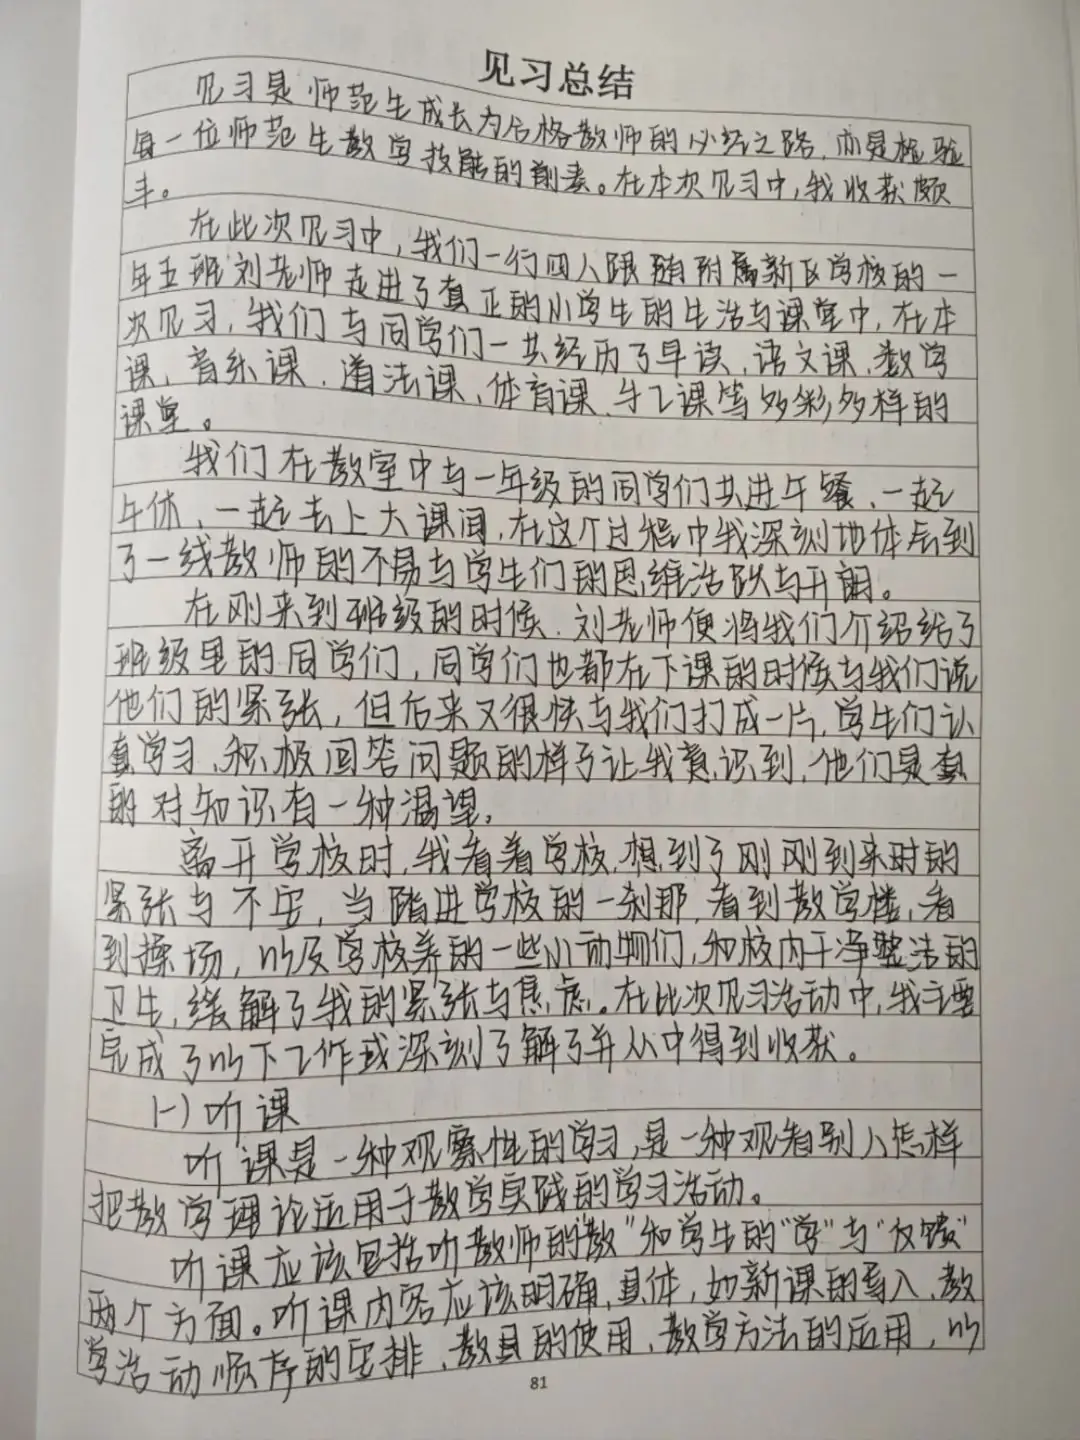 见习总结
见习是师范生成长为合格教师的必经之路,亦是检验
每一位师范生教学技能的前奏。在本次见习中,我收获颇
丰。
在此次见习中,我们一行四人跟随附属新区学校的一
年五班刘老师走进了真正的小学生的生活与课堂中,在本
次见习,我们与同学们一共经历了早读、语文课、数学
课、音乐课、道法课、体育课、手工课等多彩多样的
课堂。
我们在教室中与一年级的同学们共进午餐、一起
午休、一起去上大课间,在这个过程中我深刻地体会到
了一线教师的不易与学生们的思维活跃与开朗。
在刚来到班级的时候,刘老师便将我们介绍给了
班级里的同学们,同学们也都在下课的时候与我们说
他们的紧张,但后来又很快与我们打成一片,学生们认
真学习、积极回答问题的样子让我意识到,他们是真
的对知识有一种渴望。
离开学校时,我看着学校,想到了刚刚到来时的
紧张与不安,当踏进学校的一刹那,看到教学楼,看
到操场,以及学校养的一些小动物们,和校内干净整洁的
卫生,缓解了我的紧张与焦虑。在此次见习活动中,我主要
完成了以下工作或深刻了解了并从中得到收获。
(一)听课
听课是一种观察性的学习,是一种观看别人怎样
把教学理论运用于教学实践的学习活动。
听课应该包括听教师的“教”和学生的“学”与“反馈”
两个方面。听课内容应该明确、具体,如新课的导入、教
学活动顺序的安排、教具的使用、教学方法的应用,以
81